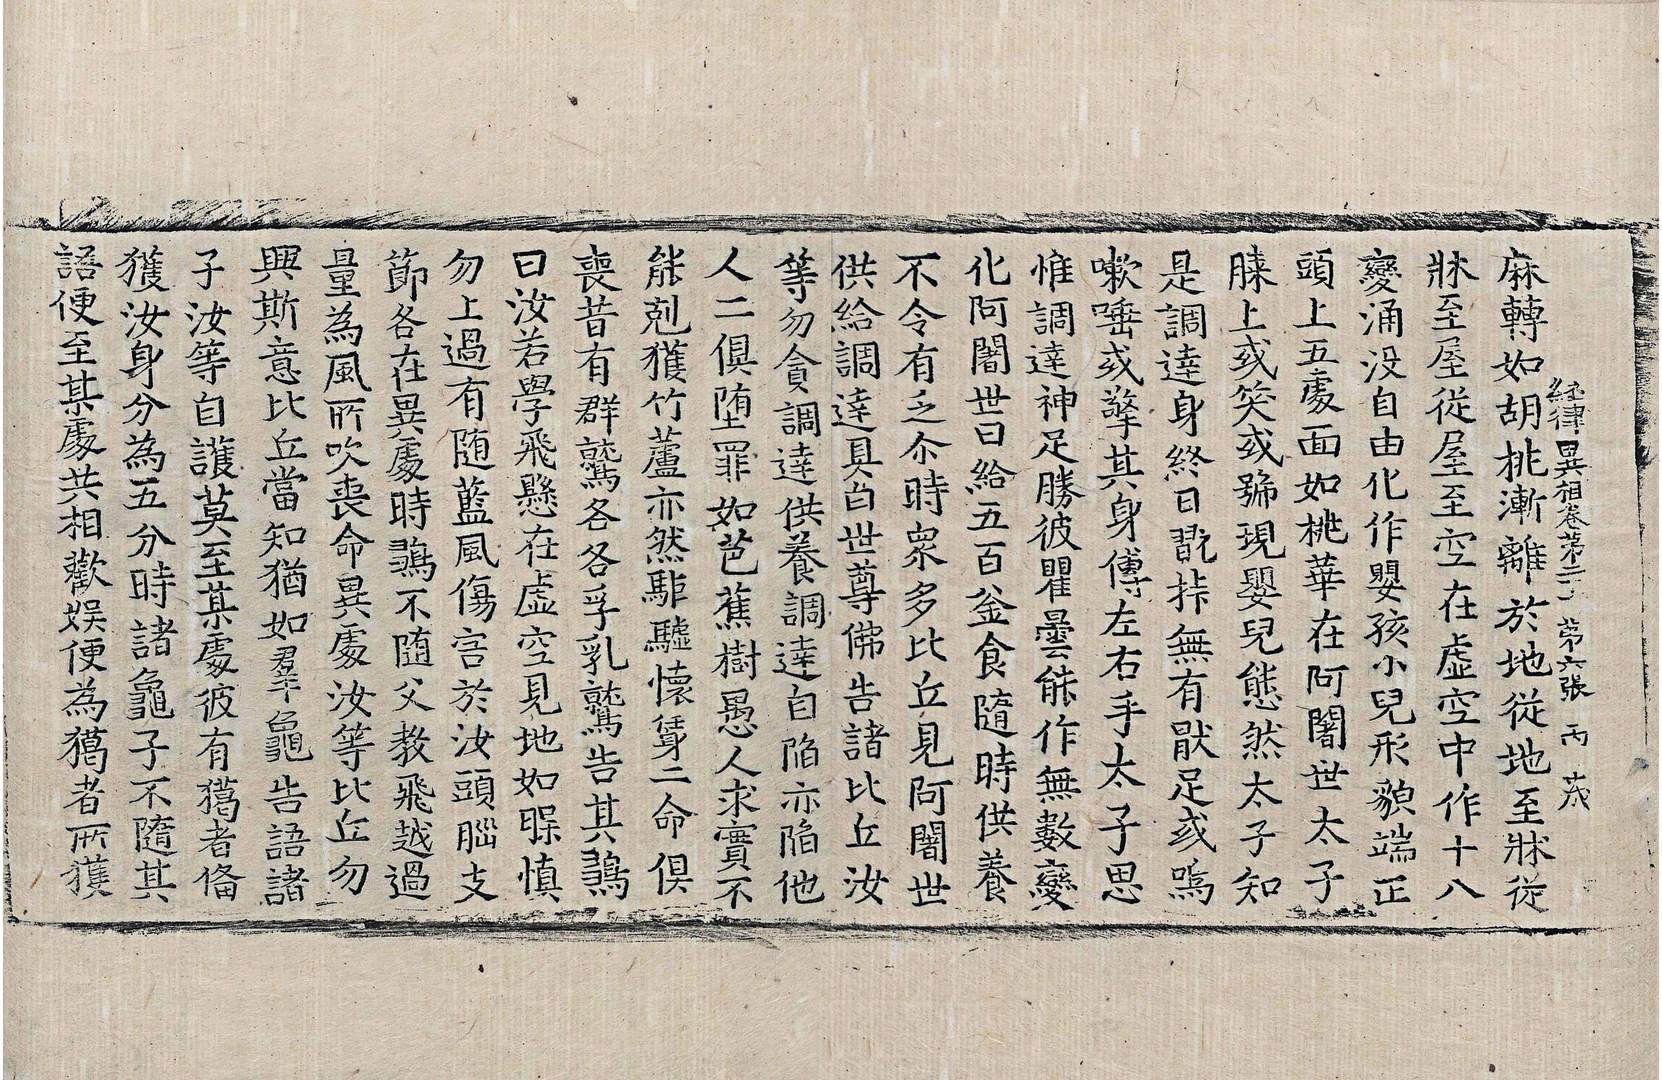 經律異相卷第二十一 第六張 丙 茂
麻轉如胡桃漸離於地從地至牀從
牀至屋從屋至空在虛空中作十八
變涌没自由化作嬰孩小兒形貌端正
頭上五處面如桃華在阿闍世太子
膝上或笑或號現嬰兒態然太子知
是調達身終日翫弄無有猒足或嗚
嗽唾或擎其身傅左右手太子思
惟調達神足勝彼瞿曇能作無數變
化阿闍世日給五百釜食隨時供養
不令有乏尒時衆多比丘見阿闍世
供給調達具白世尊佛告諸比丘汝
等勿貪調達供養調達自陷亦陷他
人二俱墮罪如芭蕉樹愚人求實不
能剋獲竹蘆亦然駏驉懷㝃二命俱
喪昔有群鷲各各孚乳鷲告其鵽
曰汝若學飛懸在虛空見地如㮈慎
勿上過有隨藍風傷害於汝頭腦支
節各在異處時鵽不隨父教飛越過
量為風所吹喪命異處汝等比丘勿
興斯意比丘當知猶如羣龜告語諸
子汝等自護莫至某處彼有獦者俻
獲汝身分為五分時諸龜子不隨其
語便至某處共相歡娛便為獦者所獲